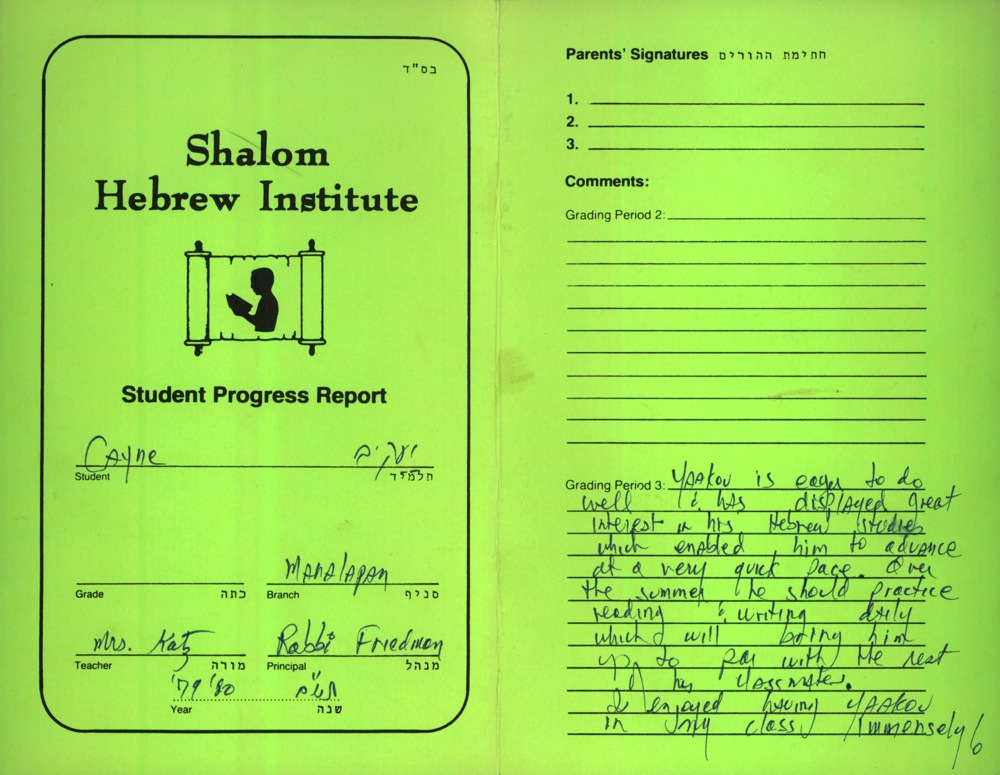 בס"ד
Shalom
Hebrew Institute
Student Progress Report
Cayne יעקב
Student תלמיד
Manalapan
Grade כתה Branch סניף
Mrs. Katz Rabbi Friedman
Teacher מורה Principal מנהל
'79 '80 תש"מ
Year שנה
Parents' Signatures חתימת ההורים
1.
2.
3.
Comments:
Grading Period 2:
Grading Period 3: YAAKOV is eager to do
well & has displayed great
interest in his Hebrew studies
which enabled him to advance
at a very quick pace. Over
the summer he should practice
reading & writing daily
which will bring him
up to par with the rest
of his classmates.
I enjoyed having YAAKOV
in my class immensely